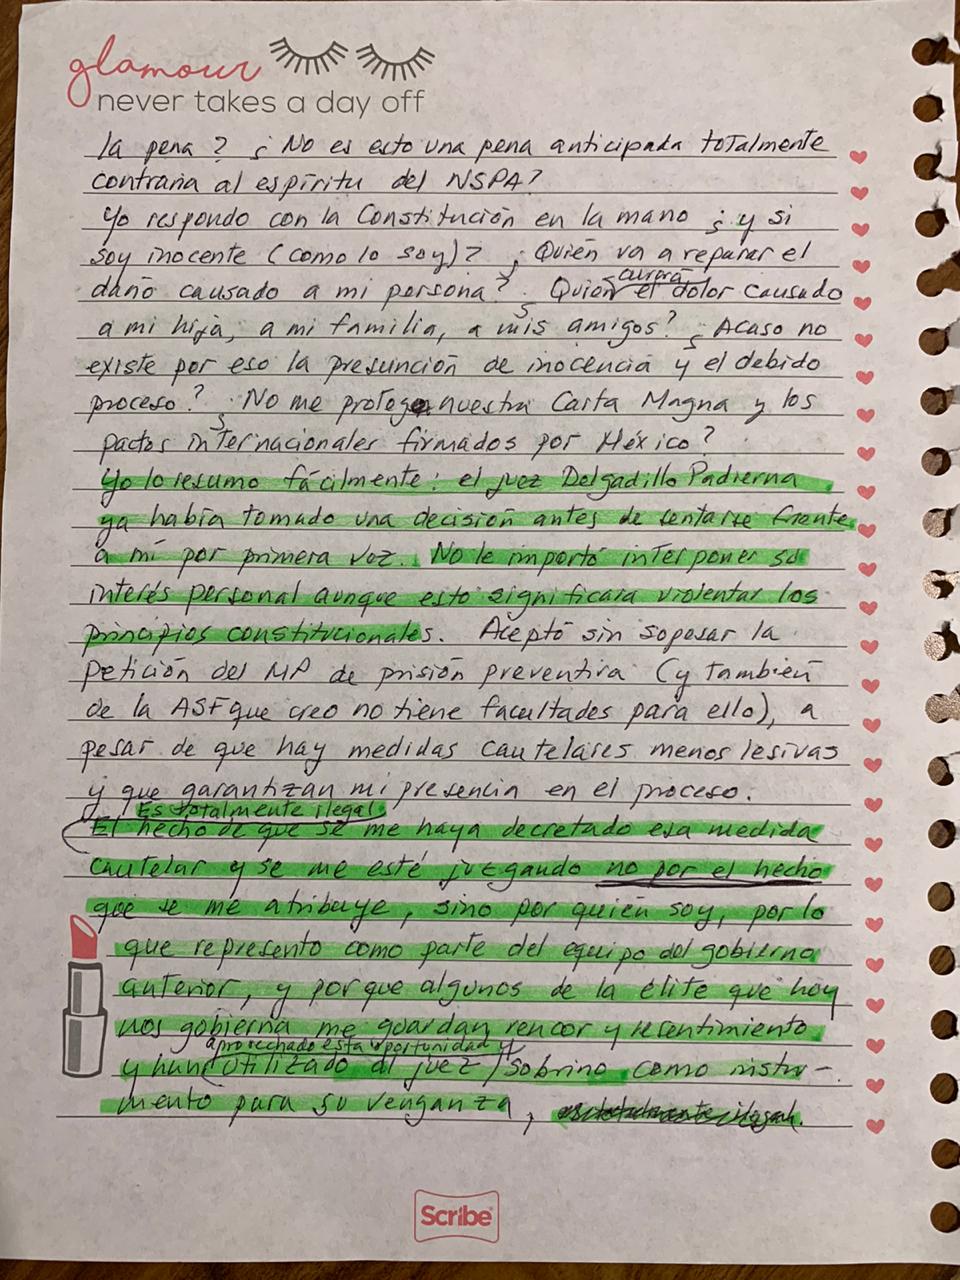 glamour
never takes a day off
la pena? ¿No es esto una pena anticipada totalmente
contraria al espíritu del NSPA?
Yo respondo con la Constitución en la mano ¿y si
soy inocente (como lo soy)? ¿Quién va a reparar el
curará
daño causado a mi persona? ¿Quién el dolor causado
a mi hija, a mi familia, a mis amigos? ¿Acaso no
existe por eso la presunción de inocencia y el debido
proceso? ¿No me protege nuestra Carta Magna y los
pactos internacionales firmados por México?
Yo lo resumo fácilmente: el juez Delgadillo Padierna
ya había tomado una decisión antes de sentarse frente
a mí por primera vez. No le importó interponer su
interés personal aunque esto significara violentar los
principios constitucionales. Aceptó sin sopesar la
petición del MP de prisión preventiva (y también
de la ASF que creo no tiene facultades para ello), a
pesar de que hay medidas cautelares menos lesivas
y que garantizan mi presencia en el proceso.
Es totalmente ilegal
El hecho de que se me haya decretado esa medida
cautelar y se me esté juzgando no por el hecho
que se me atribuye, sino por quién soy, por lo
que represento como parte del equipo del gobierno
anterior, y porque algunos de la élite que hoy
nos gobierna me guardan rencor y resentimiento
aprovechado esta oportunidad y
y han utilizado al juez/sobrino como instru-
mento para su venganza,
Scribe